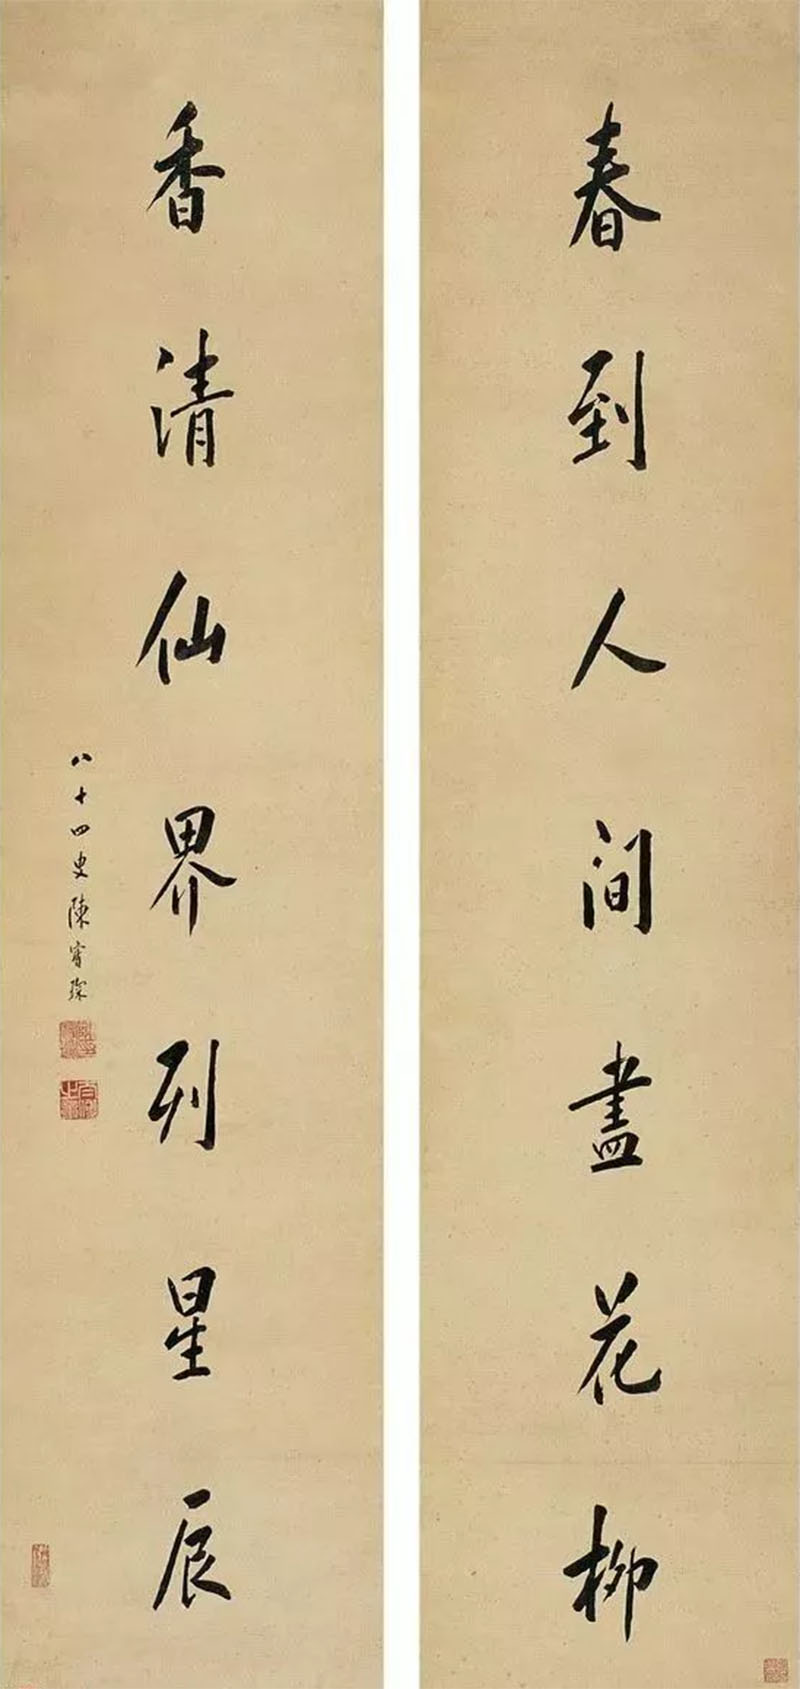 春到人间盡花柳
香清仙界列星辰
八十四叟陳寶琛